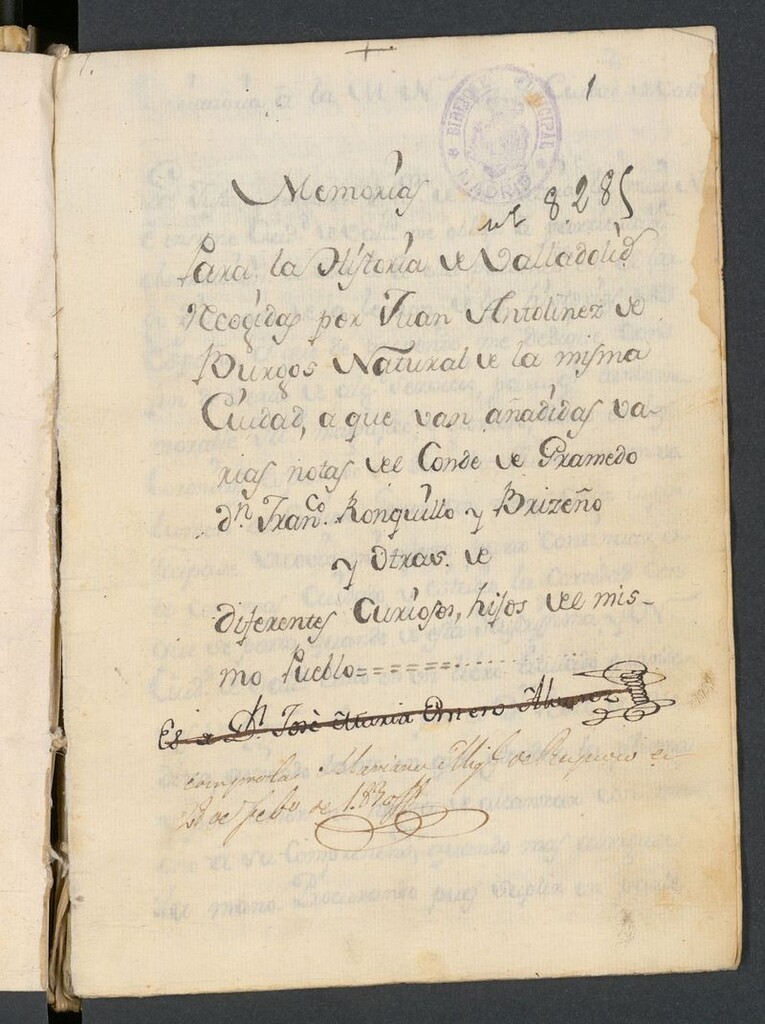 1
BIBLIOTECA MUNICIPAL
MADRID
Memorias
nt 8.285
Para la Historia de Valladolid
Recogidas por Juan Antolinez de
Burgos Natural de la misma
Ciudad, a que van añadidas va-
rias notas del Conde de Gramedo
dn Franco. Ronquillo y Brizeño
y Otras. de
diferentes Curiosos, hijos del mis-
mo Pueblo=======
Es a Dn José Maria Entero Alvarez
comprola Mariano Migl de Reynoso en
28 de febo de 1.830